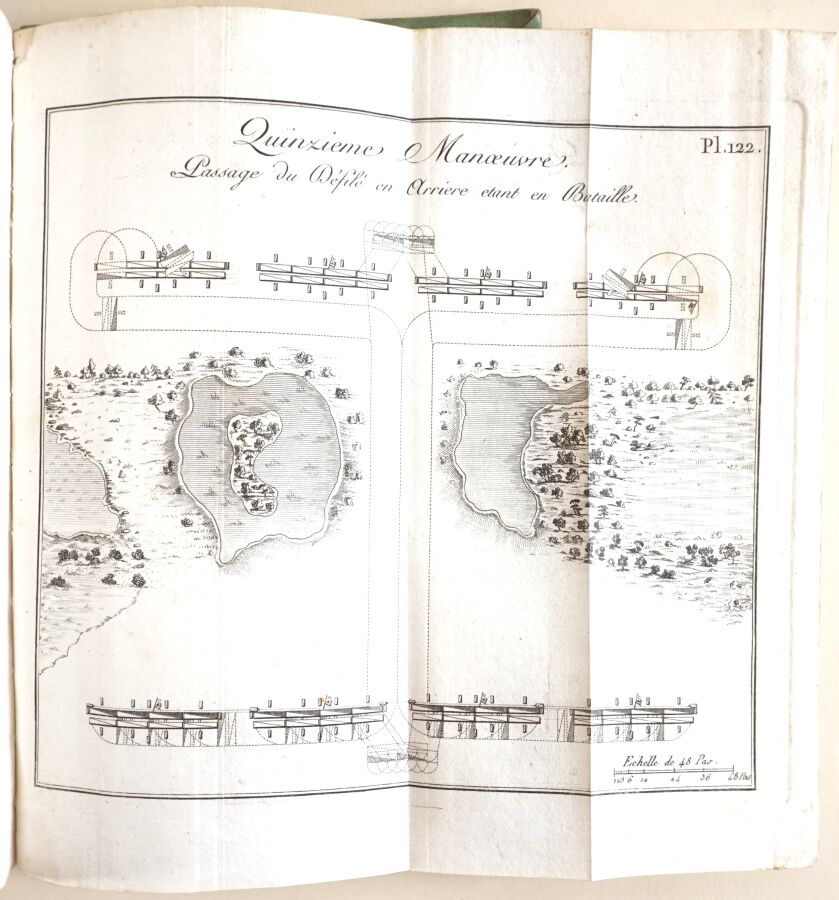 Quinzieme Manœuvre.
Pl.122.
Passage du Défilé en Arriere etant en Bataille.
Echelle de 48 Pas.
1 2 3 6 12 24 36 48 Pas